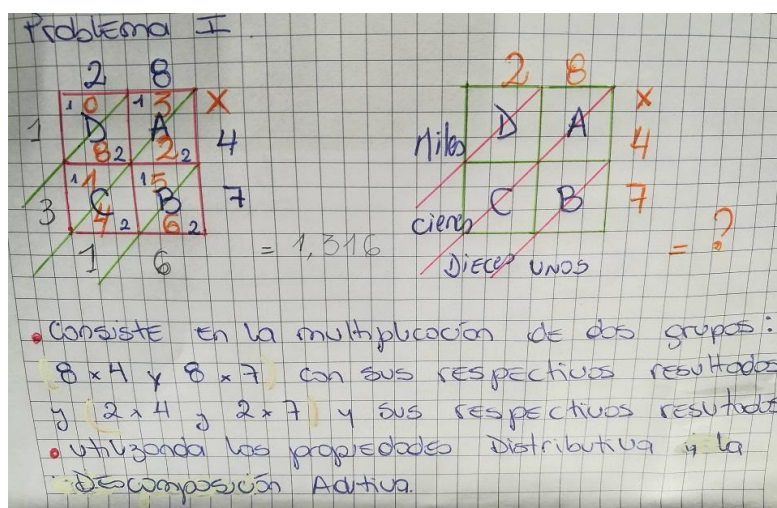 Problema I.
2 8
1 0 1 3 X
1 D A 4
8 2 2 2
1 1 1 5
3 C B 7
4 2 6 2
1 6 = 1,316
2 8
X
Miles D A 4
cienes C B 7
Dieces unos = ?
• consiste en la multiplicación de dos grupos:
(8 x 4 y 8 x 7) con sus respectivos resultados
y (2 x 4 y 2 x 7) y sus respectivos resultados
• utilizando los propiedades Distributiva y la
Descomposición Aditiva.